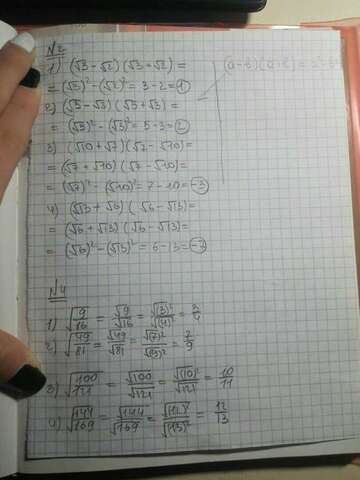 N2
1) (√3 - √2) (√3 + √2) =
= (√3)² - (√2)² = 3 - 2 = 1
2) (√5 - √3) (√5 + √3) =
= (√5)² - (√3)² = 5 - 3 = 2
3) (√10 + √7) (√7 - √10) =
= (√7 + √10) (√7 - √10) =
= (√7)² - (√10)² = 7 - 10 = -3
4) (√13 + √6) (√6 - √13) =
= (√6 + √13) (√6 - √13) =
= (√6)² - (√13)² = 6 - 13 = -7
N4
1) √9/16 = √9/√16 = √(3)²/√(4)² = 3/4
2) √49/81 = √49/√81 = √(7)²/√(9)² = 7/9
3) √100/121 = √100/√121 = √(10)²/√121 = 10/11
4) √144/169 = √144/√169 = √(12)²/√(13)² = 12/13